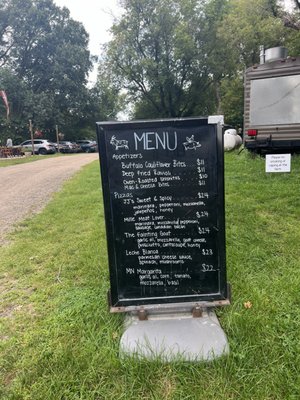 MENU
Appetizers
Buffalo Cauliflower Bites $11
Deep Fried Ravioli $11
Oven-Roasted $10
Mac & Cheese Bites $11
Pizzas
JJ's Sweet & Spicy $24
marinara, pepperoni, mozzarella,
jalapeños, honey
Mille Meat Lover $24
marinara, mozzarella, pepperoni,
sausage, canadian bacon
The Fainting Goat $24
garlic oil, mozzarella, goat cheese,
prosciutto, honey
Leche Blanca $23
parmesan cheese sauce,
spinach, mushrooms
MN Margarita $22
garlic oil, tomato,
mozzarella, basil